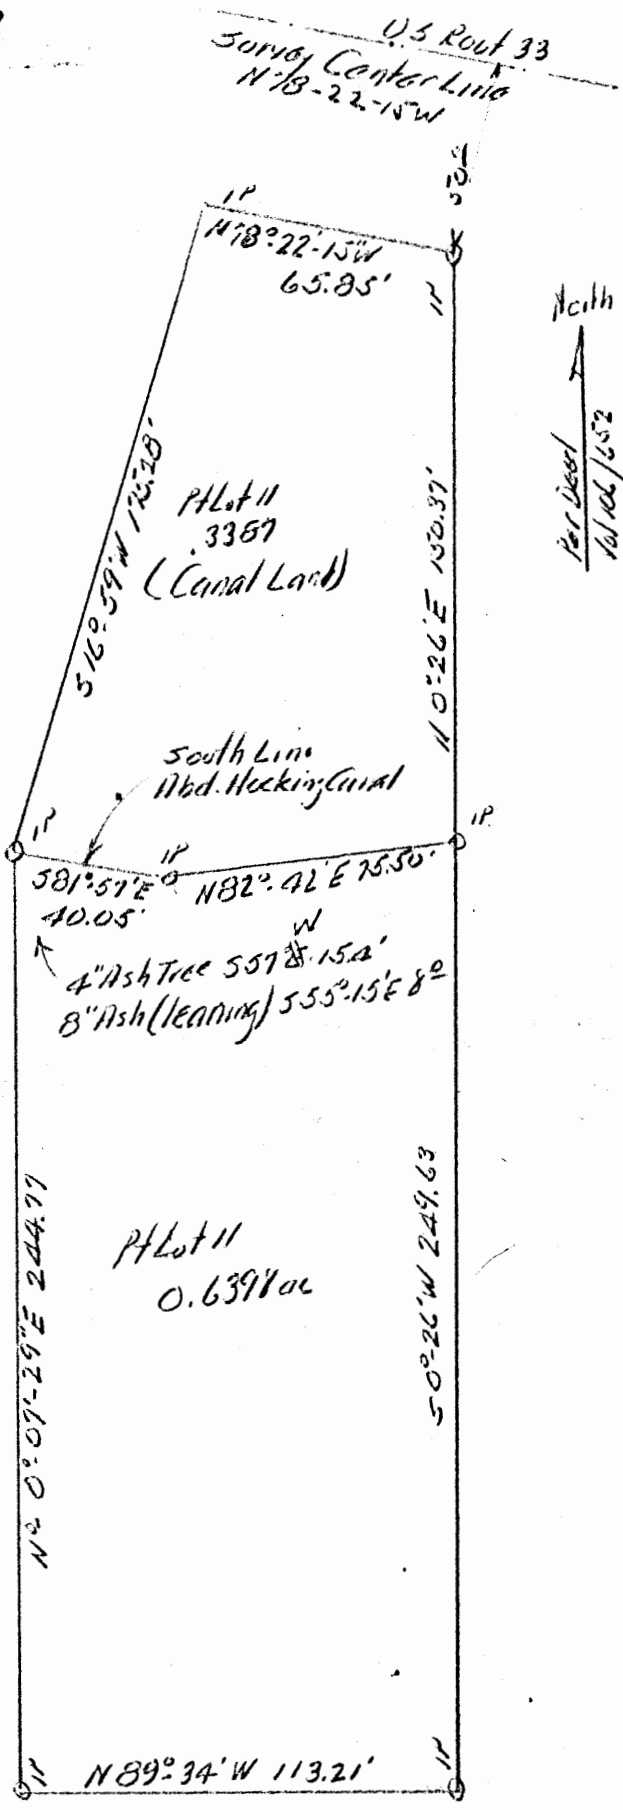 US Rout 33
Survey Center Line
N 78-22-15W
50±
IP
N78°-22'-15"W
65.85'
IP
North
Per Deed
Vol 106/652
S 16°-59' W 175.28'
Pt Lot 11
.3387
(Canal Land)
N 0°-26' E 150.37'
South Line
Abd. Hocking Canal
IP
IP
IP
S81°-57'E
40.05'
N82°-42'E 75.50'
W
4" Ash Tree S57 15.4'
8" Ash (leaning) S55°-15'E 8°
N 0°-07'-29"E 244.77
Pt Lot 11
0.6397 ac
S 0°-26' W 249.63
IP
N 89°-34' W 113.21'
IP